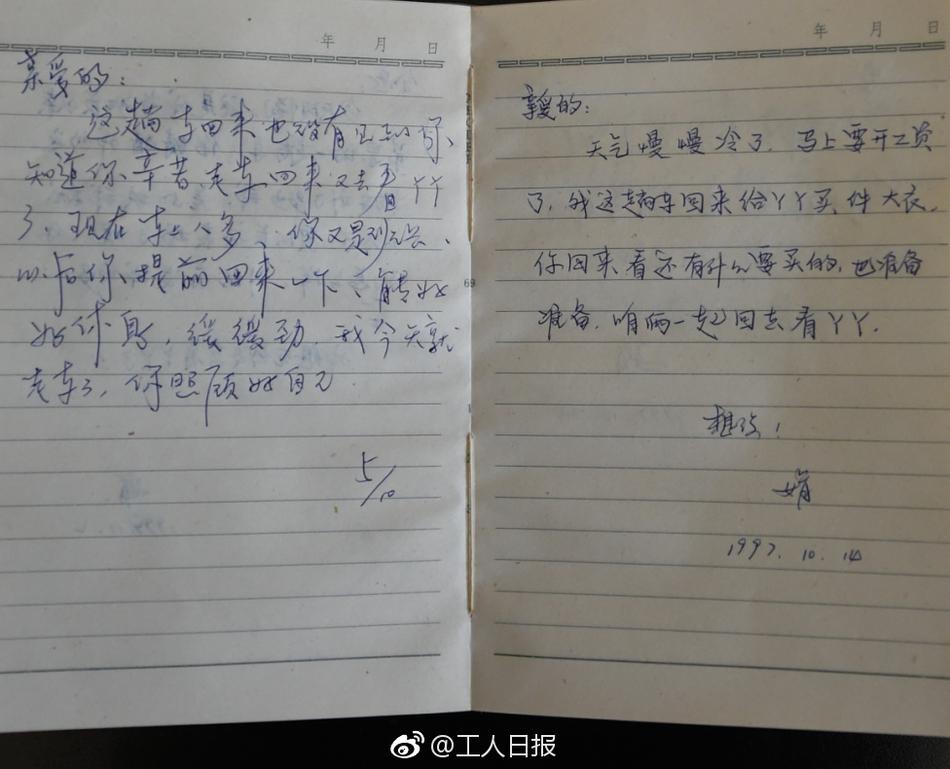 年 月 日
亲爱的：
这趟车回来也没有见到你、
知道你辛苦，走车回来又去看丫丫
了、现在车上人多、你又是列
以后你、提前回来一下、能好
好休息，缓缓劲，我今天就
走车了，你照顾好自己
5/10
年 月 日
亲爱的：
天气慢慢冷了，马上要开工资
了，我这趟车回来给丫丫买件大衣，
你回来看还有什么要买的，也准备
准备，咱俩一起回去看丫丫．
想你！
娟
1997．10．14
69
@工人日报